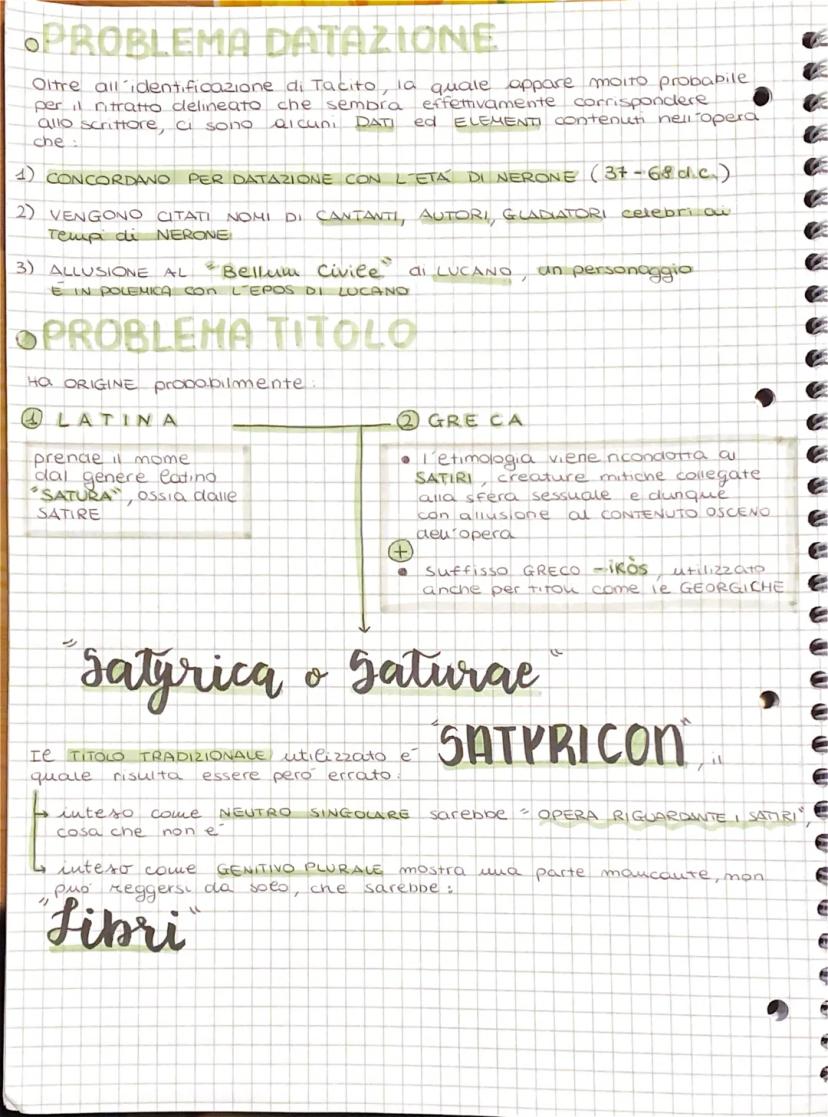 PROBLEMA DATAZIONE
Oltre all'identificazione di Tacito, la quale appare molto probabile
per il ritratto delineato che sembra effettivamente corrispondere
allo scrittore, ci sono alcuni DATI ed ELEMENTI contenuti nell'opera
che:
1) CONCORDANO PER DATAZIONE CON L'ETÀ DI NERONE (37-68 d.C.)
2) VENGONO CITATI NOMI DI CANTANTI, AUTORI, GLADIATORI celebri ai
Tempi di NERONE
3) ALLUSIONE AL "Bellum Civile" di LUCANO, un personaggio
È IN POLEMICA CON L'EPOS DI LUCANO
PROBLEMA TITOLO
HA ORIGINE probabilmente:
1 LATINA
2 GRECA
prende il nome
dal genere latino
"SATURA", ossia dalle
SATIRE
• l'etimologia viene ricondotta ai
SATIRI, creature mitiche collegate
alla sfera sessuale e dunque
con allusione al CONTENUTO OSCENO
dell'opera
+
• Suffisso GRECO -ikòs, utilizzato
anche per titoli come le GEORGICHE
"Satyrica o Saturae"
Il TITOLO TRADIZIONALE utilizzato è "SATYRICON", il
quale risulta essere però errato:
↳ inteso come NEUTRO SINGOLARE sarebbe "OPERA RIGUARDANTE I SATIRI",
cosa che non è
↳ inteso come GENITIVO PLURALE mostra una parte mancante, non
può reggersi da solo, che sarebbe:
"Libri"